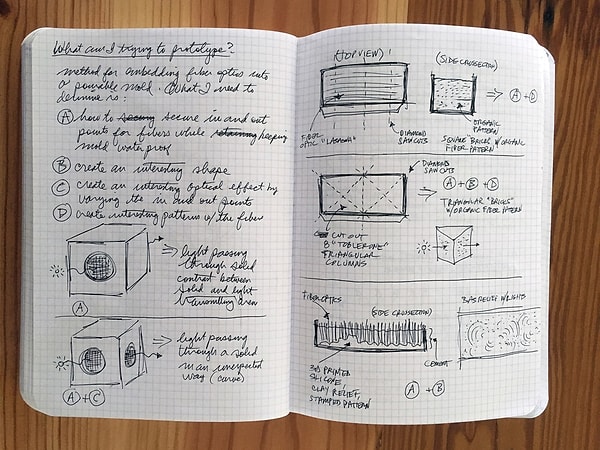 What am I trying to prototype?
method for embedding fiber optics into
a pourable mold. (What I need to
determine is:
A how to secure in and out
points for fibers while keeping
mold waterproof
B create an interesting shape
C create an interesting optical effect by
varying the in and out points
D create interesting patterns w/ the fiber
⇒ light passing
through solid
contrast between
solid and light
transmitting area
A
⇒ light passing
through a solid
in an unexpected
way (curve)
A + C
(TOP VIEW)
FIBER
OPTIC "LASAGNA"
DIAMOND
SAW CUTS
(SIDE CROSSECTION)
⇒ A + D
ORGANIC
PATTERN
SQUARE "BRICKS" W/ ORGANIC
FIBER PATTERN
DIAMOND
SAW CUTS
CUT OUT
8 "TOBLERONE"
TRIANGULAR
COLUMNS
⇒ A + B + D
TRIANGULAR "BRICKS"
W/ ORGANIC FIBER PATTERN
FIBER OPTICS
(SIDE CROSSECTION)
CEMENT
SILICONE,
CLAY RELIEF,
STAMPED PATTERN
BAS RELIEF W/ LIGHTS
A + B